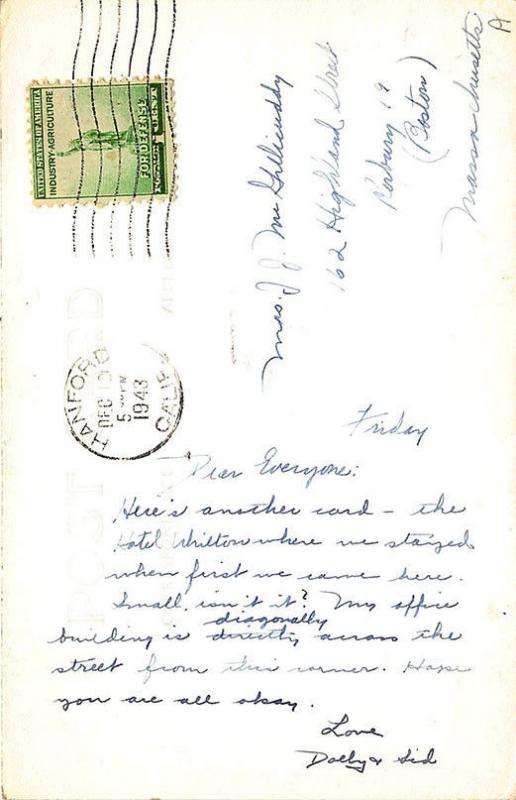 UNITED STATES OF AMERICA
INDUSTRY-AGRICULTURE
FOR DEFENSE
HANFORD
DEC 10
5 PM
1943
CALIF.
POST CARD
A
Mrs. J. J. McGillicuddy
162 Highland Street
Roxbury 19
(Boston)
Massachusetts
Friday
Dear Everyone:
Here's another card – the
Hotel Whilton where we stayed
when first we came here.
Small, isn't it? My office
diagonally
building is directly across the
street from this corner. Hope
you are all okay.
Love
Dolly & Sid